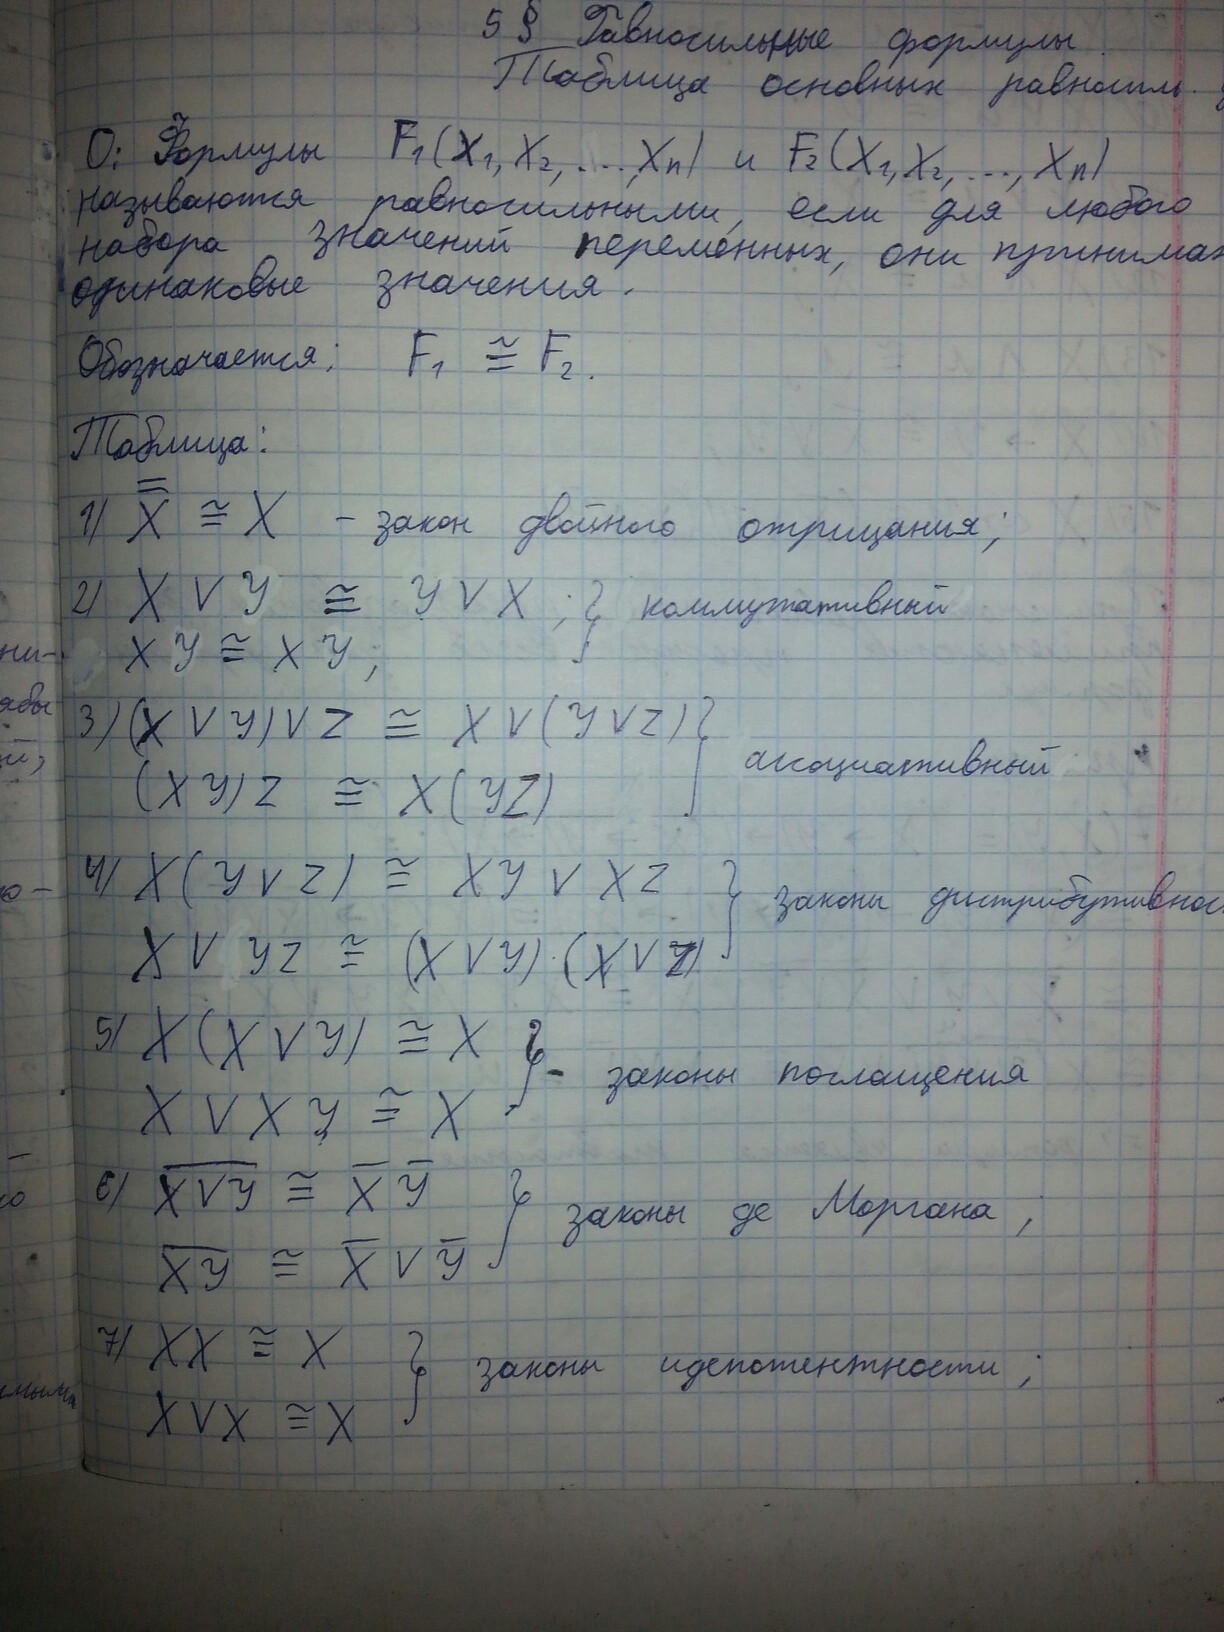 5 § Равносильные формулы.
Таблица основных равносиль.
О: Формулы F₁(X₁, X₂, ..., Xₙ) и F₂(X₁, X₂, ..., Xₙ)
называются равносильными, если для любого
набора значений переменных, они принимают
одинаковые значения.
Обозначается: F₁ ≅ F₂.
Таблица:
1) X̿ ≅ X – закон двойного отрицания;
2) X V Y ≅ Y V X ; } коммутативный
XY ≅ XY;
3) (X V Y) V Z ≅ X V (Y V Z) }
(XY)Z ≅ X(YZ) ассоциативный
4) X(Y V Z) ≅ XY V XZ } законы дистрибутивнос
X V YZ ≅ (X V Y)·(X V Z)
5) X(X V Y) ≅ X } – законы поглащения
X V XY ≅ X
6) X̅ ̅V̅ ̅Y̅ ≅ X̅ Y̅ } законы де Моргана;
X̅Y̅ ≅ X̅ V Y̅
7) XX ≅ X } законы идепотентности;
X V X ≅ X